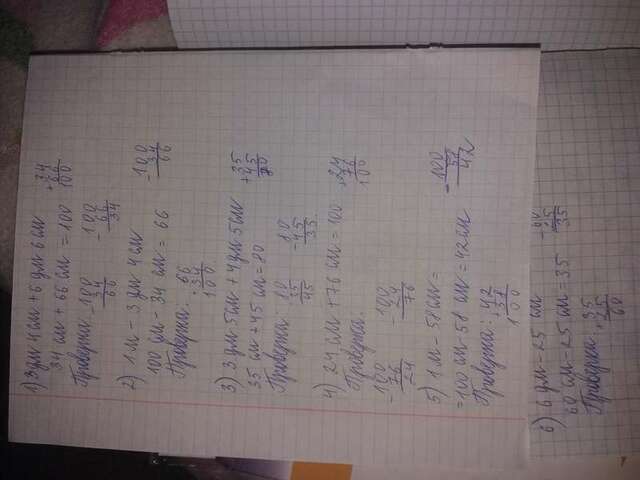 1) 3дм 4см + 6 дм 6 см
34 см + 66 см = 100
+34
66
100
Проверка:
-100
34
66
-100
66
34
2) 1м - 3 дм 4см
100 см - 34 см = 66
-100
34
66
Проверка:
+66
34
100
3) 3 дм 5см + 4 дм 5см
35 см + 45 см = 80
+35
45
80
Проверка:
35
45
-45
35
4) 24 см + 76 см = 100
+24
76
100
Проверка:
-100
76
24
-100
24
76
5) 1м - 58 см =
= 100 см - 58 см = 42 см
-100
58
42
Проверка:
+42
58
100
6) 6 дм - 25 см
60 см - 25 см = 35
-60
25
35
Проверка:
+35
25
60